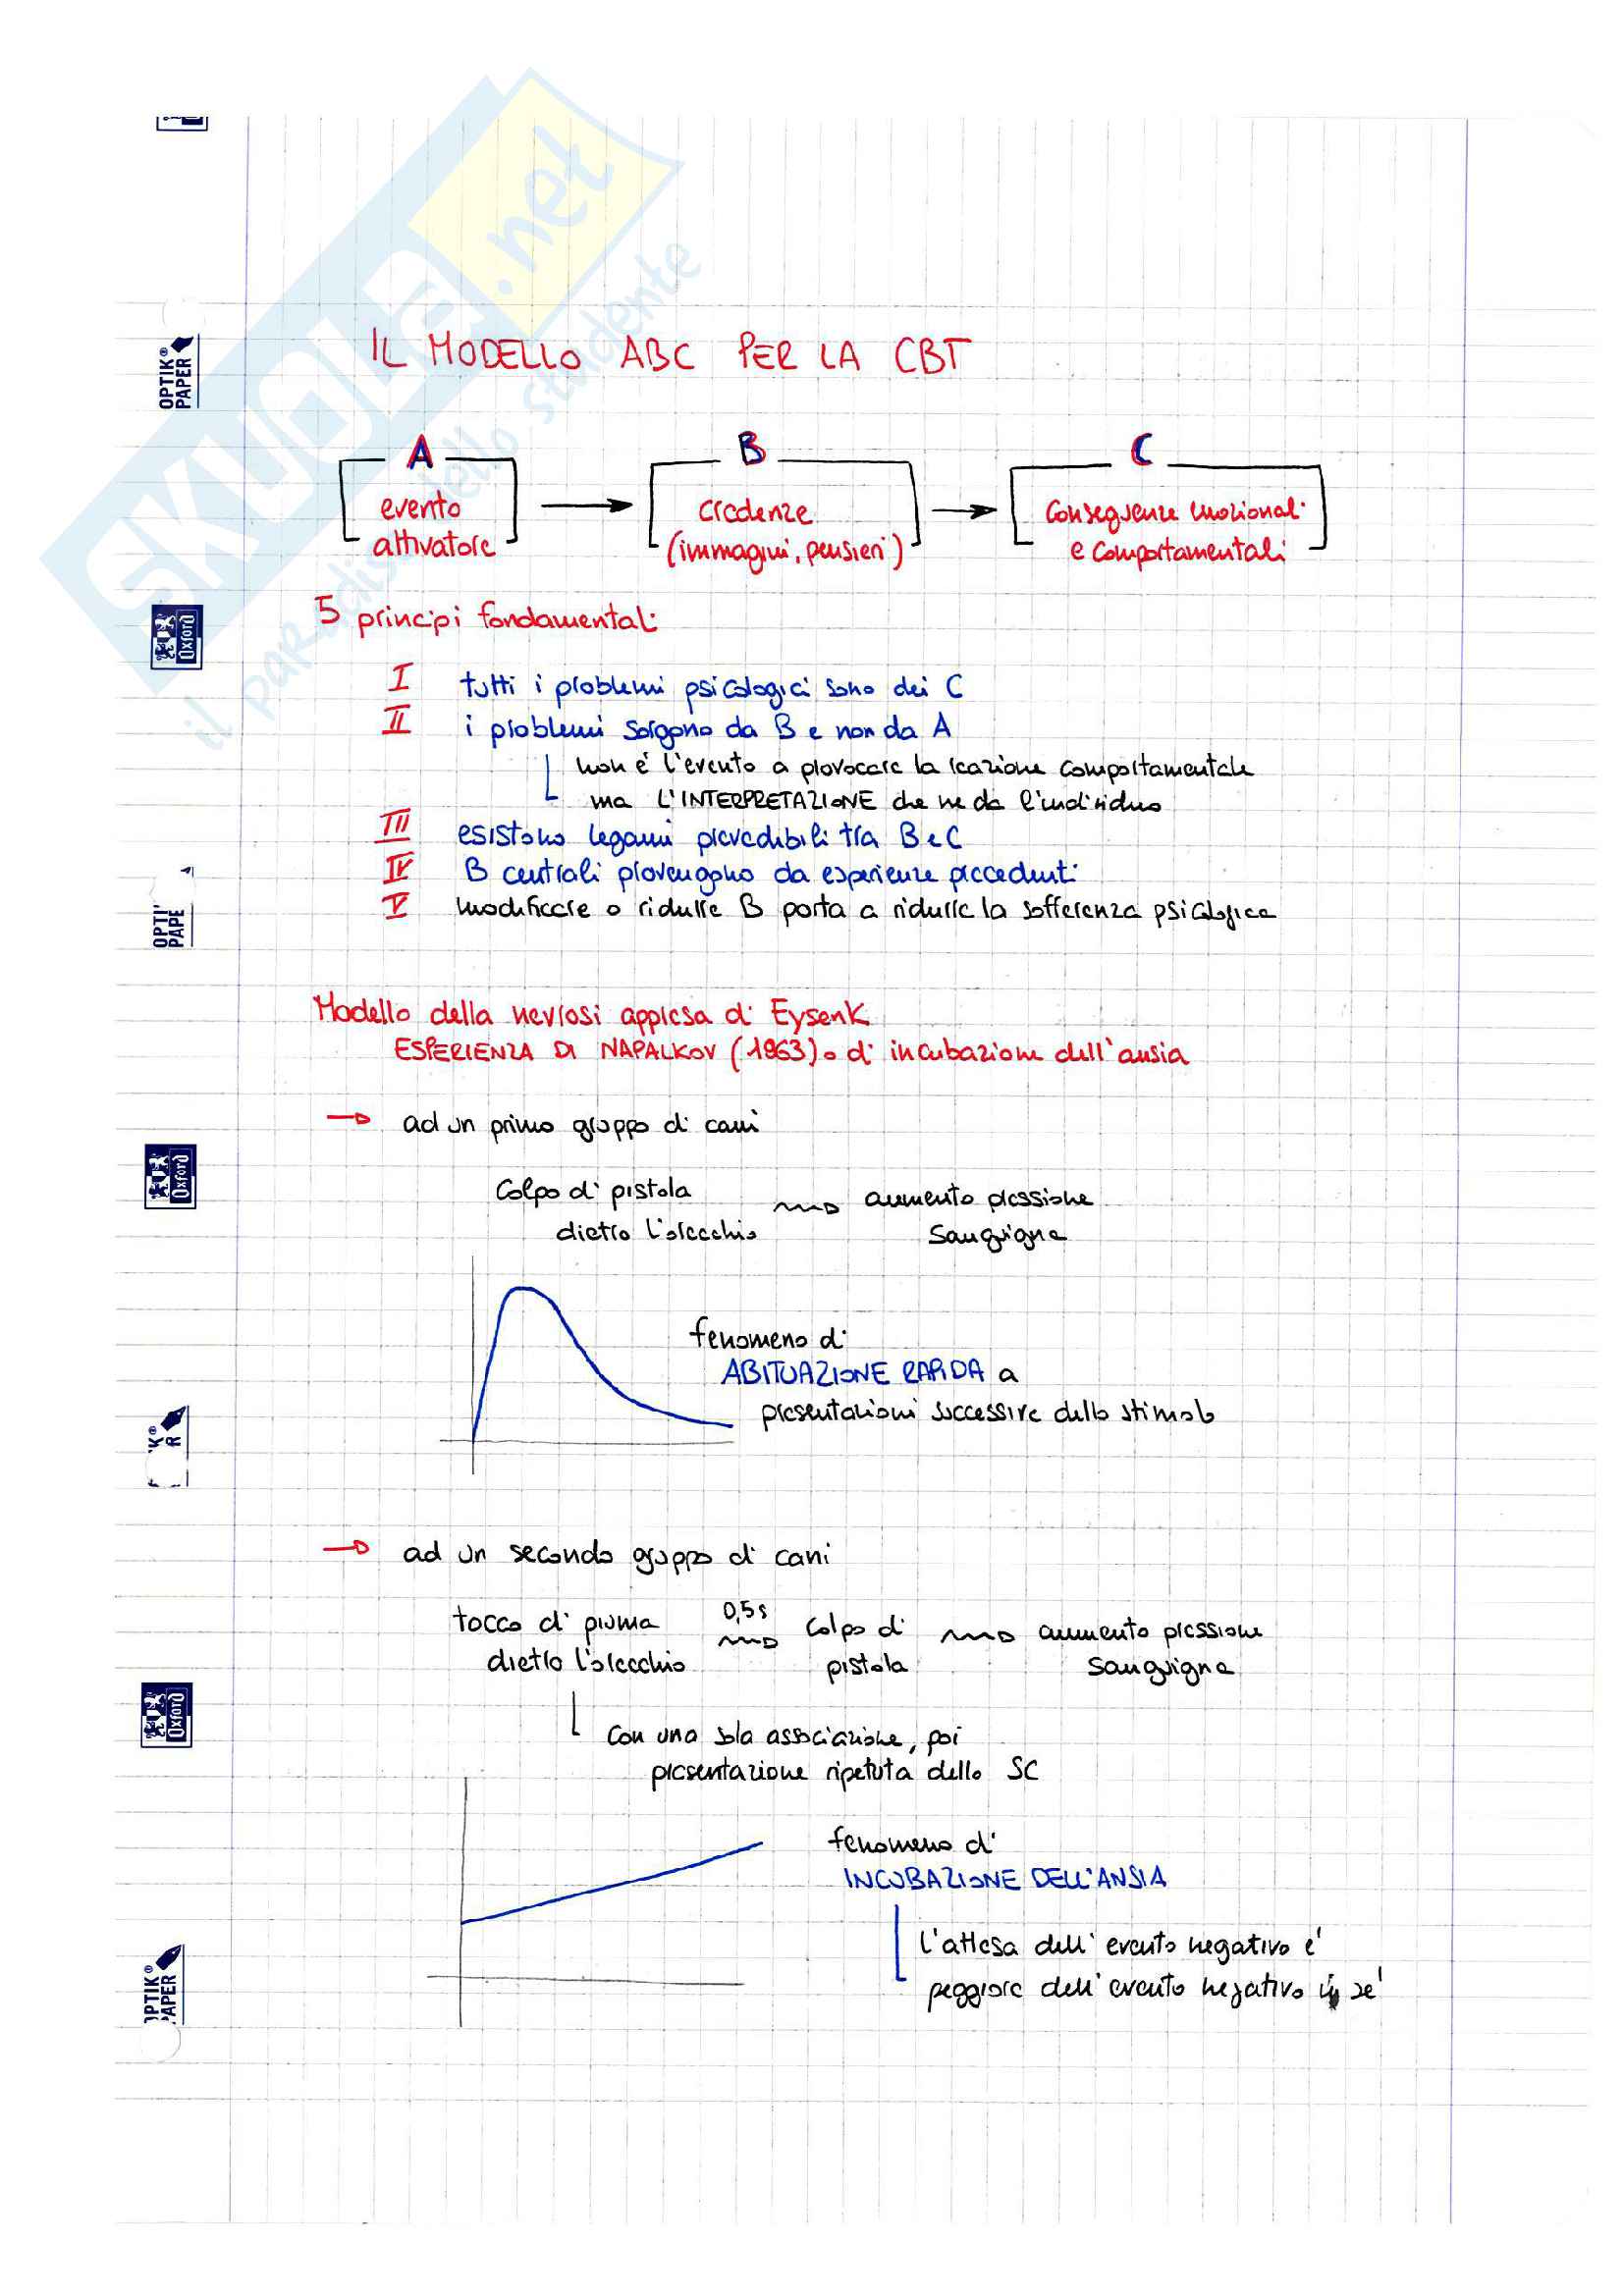 SKUOLA.net
il paradiso dello studente
OPTIK®
PAPER
Oxford
OPTI
PAPE
Oxford
K®
R
Oxford
OPTIK®
PAPER
IL MODELLO ABC PER LA CBT
A
B
C
evento
attivatore
credenze
(immagini, pensieri)
Conseguenze emozionali
e comportamentali
5 principi fondamentali
I tutti i problemi psicologici sono dei C
II i problemi sorgono da B e non da A
non è l'evento a provocare la reazione comportamentale
ma L'INTERPRETAZIONE che ne da l'individuo
III esistono legami prevedibili tra B e C
IV B centrali provengono da esperienze precedenti
V modificare o ridurre B porta a ridurre la sofferenza psicologica
Modello della nevrosi appresa di Eysenk
ESPERIENZA DI NAPALKOV (1963) o di incubazione dell'ansia
→ ad un primo gruppo di cani
Colpo di pistola
dietro l'orecchio
aumento pressione
sanguigna
fenomeno di
ABITUAZIONE RAPIDA a
presentazioni successive dello stimolo
→ ad un secondo gruppo di cani
tocco di piuma
dietro l'orecchio
0,5s
colpo di
pistola
aumento pressione
sanguigna
con una sola associazione, poi
presentazione ripetuta dello SC
fenomeno di
INCUBAZIONE DELL'ANSIA
l'attesa dell'evento negativo é
peggiore dell'evento negativo in sé